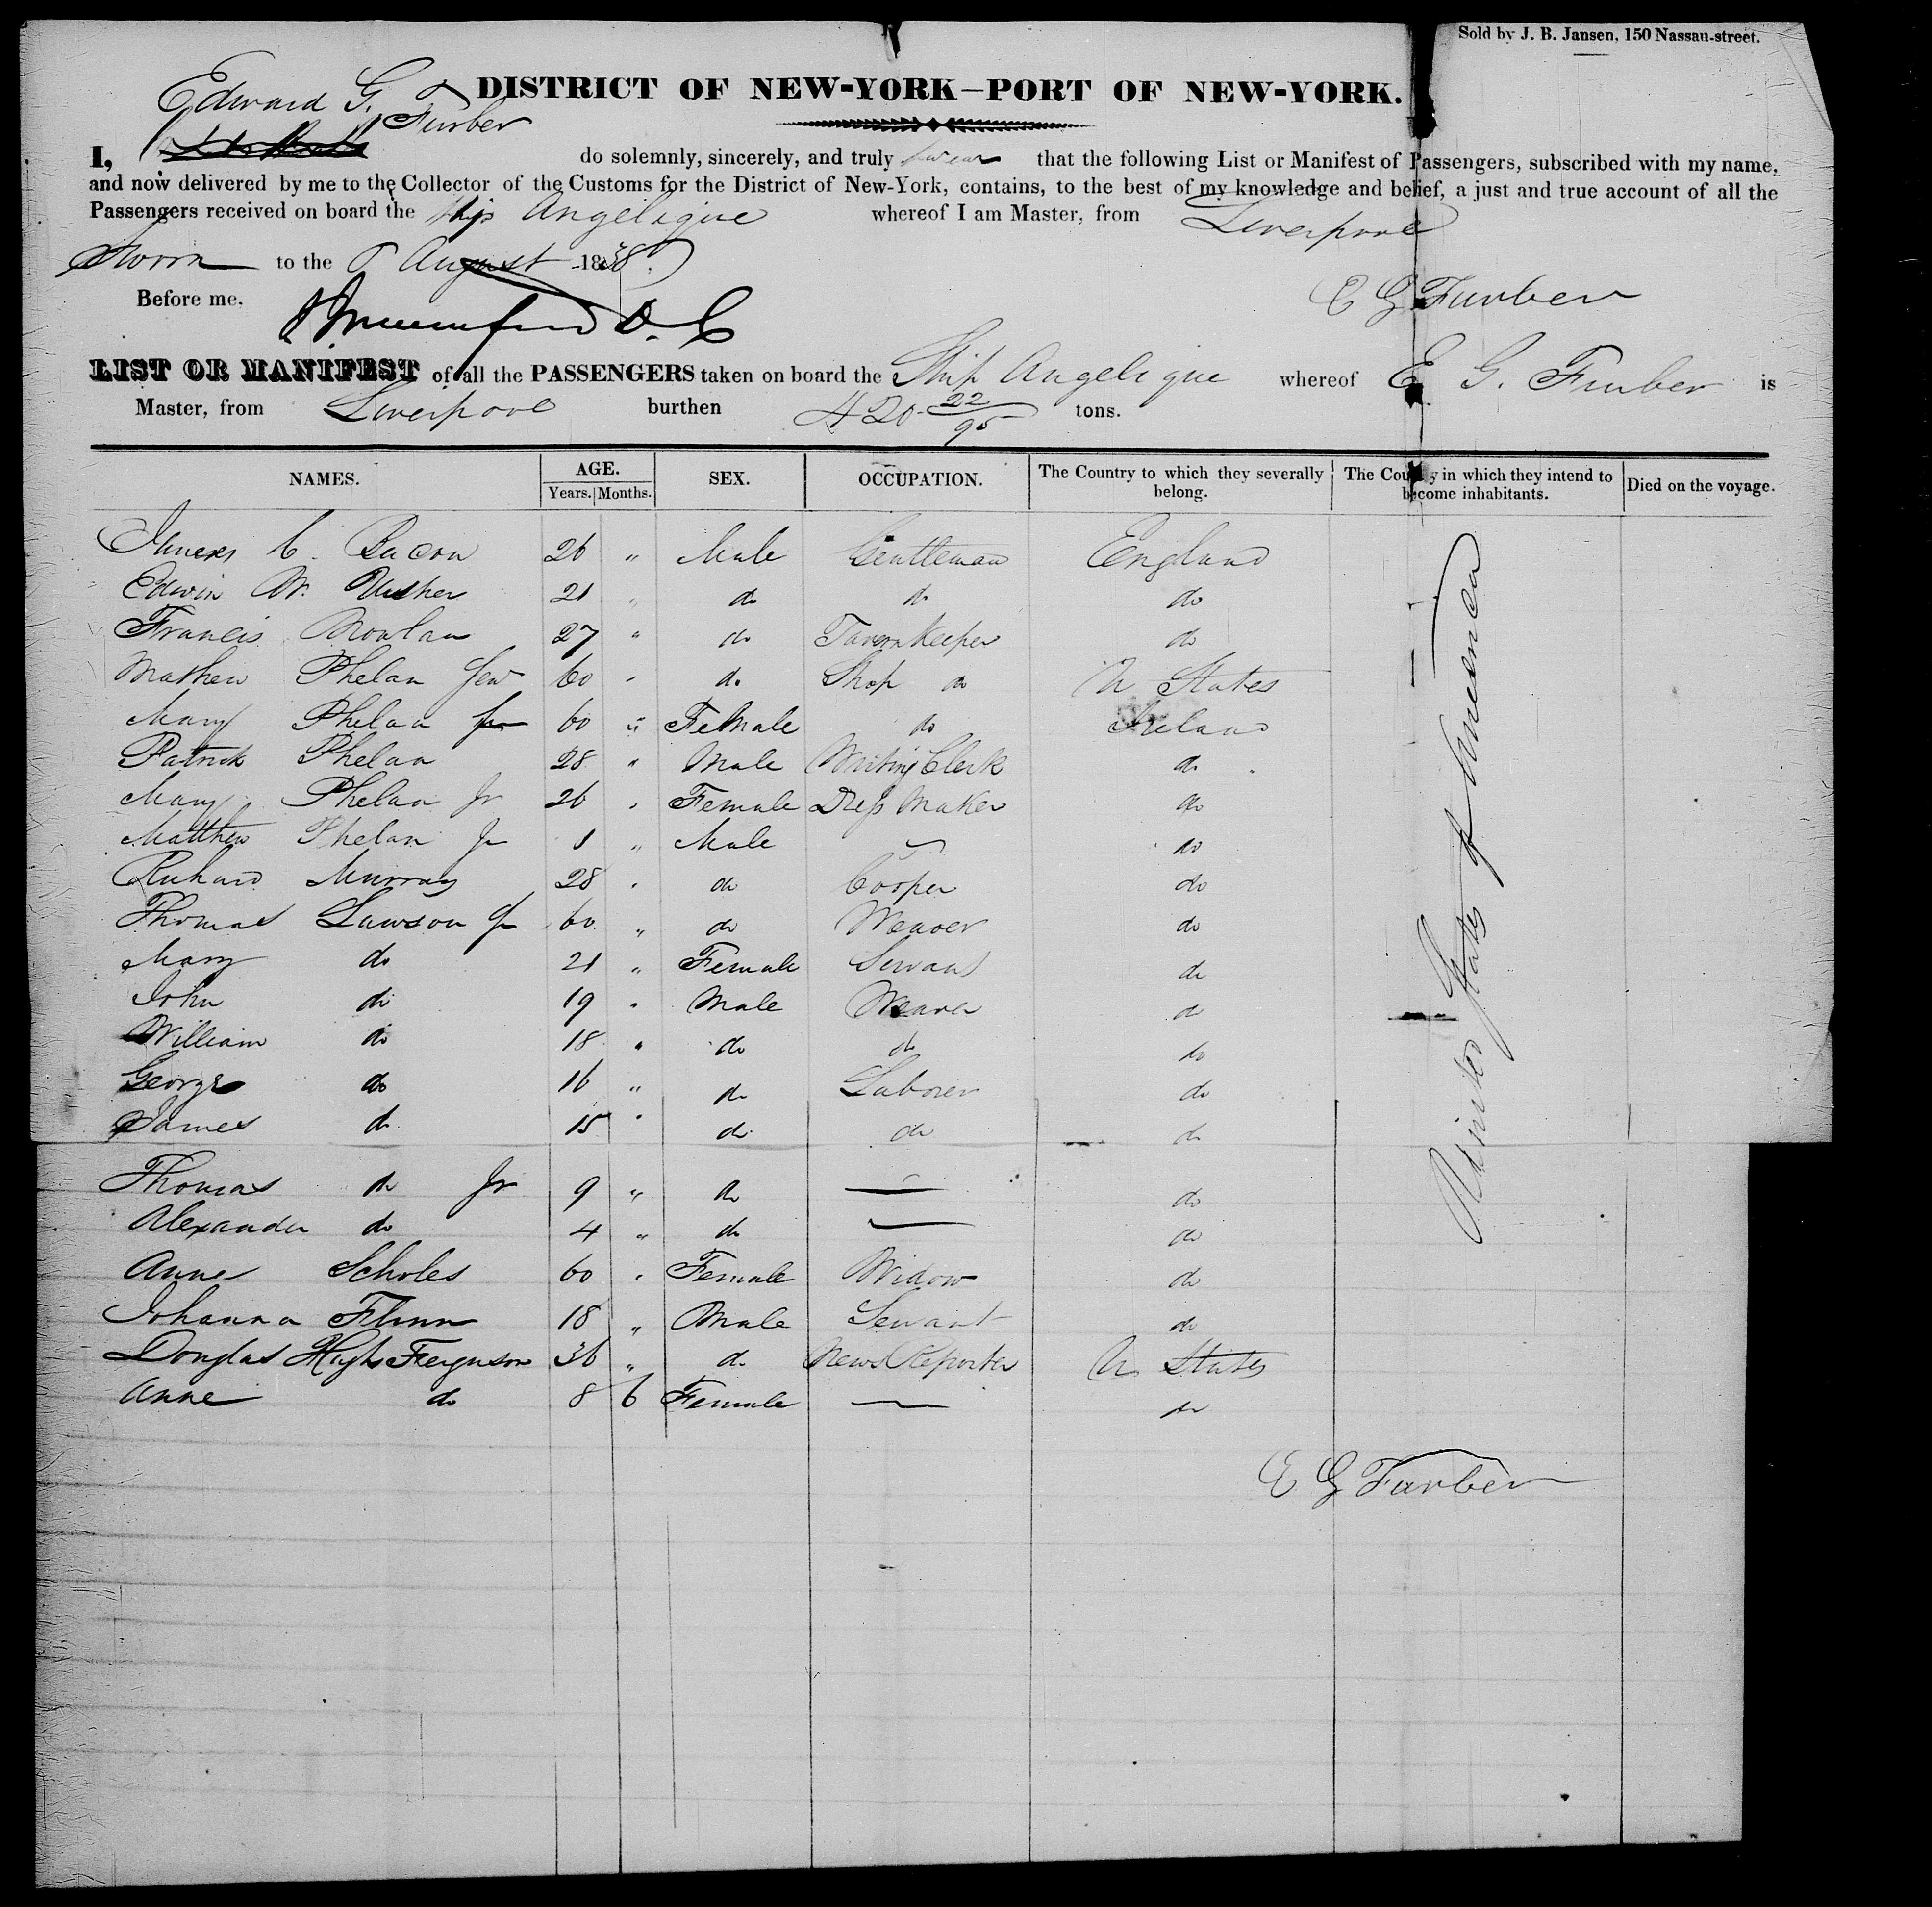 Sold by J. B. Jansen, 150 Nassau-street.
DISTRICT OF NEW-YORK—PORT OF NEW-YORK.
Edward G. Furber
I, do solemnly, sincerely, and truly swear that the following List or Manifest of Passengers, subscribed with my name,
and now delivered by me to the Collector of the Customs for the District of New-York, contains, to the best of my knowledge and belief, a just and true account of all the
Passengers received on board the Ship Angelique whereof I am Master, from Liverpool
Sworn to the 6 August 1838.
Before me. D. C
E G Furber
LIST OR MANIFEST of all the PASSENGERS taken on board the Ship Angelique whereof E. G. Furber is
Master, from Liverpool burthen 420 22/95 tons.
NAMES. AGE. SEX. OCCUPATION. The Country to which they severally belong. The Country in which they intend to become inhabitants. Died on the voyage.
Years. Months.
James C. Bacon 26 " Male Gentleman England
Edwin W. Usher 21 " do do do
Francis Nowlan 27 " do Tavern Keeper do
Mathew Phelan Sen 60 " do Shop do U States
Mary Phelan 60 " Female do Ireland
Patrick Phelan 28 " Male Writing Clerk do
Mary Phelan Jr 26 " Female Dress Maker do
Matthew Phelan Jr 1 " Male do
Richard Murray 28 " do Cooper do
Thomas Lawson 60 " do Weaver do
Mary do 21 " Female Servant do
John do 19 " Male Weaver do
William do 18 " do do do
George do 16 " do Laborer do
James do 15 " do do do
Thomas do Jr 9 " do — do
Alexander do 4 " do — do
Anne Scholes 60 " Female Widow do
Johanna Flinn 18 " Male Servant do
Douglas Hugh Ferguson 36 " do News Reporter U States
Anne do 8 6 Female — do
United States of America
E G Furber